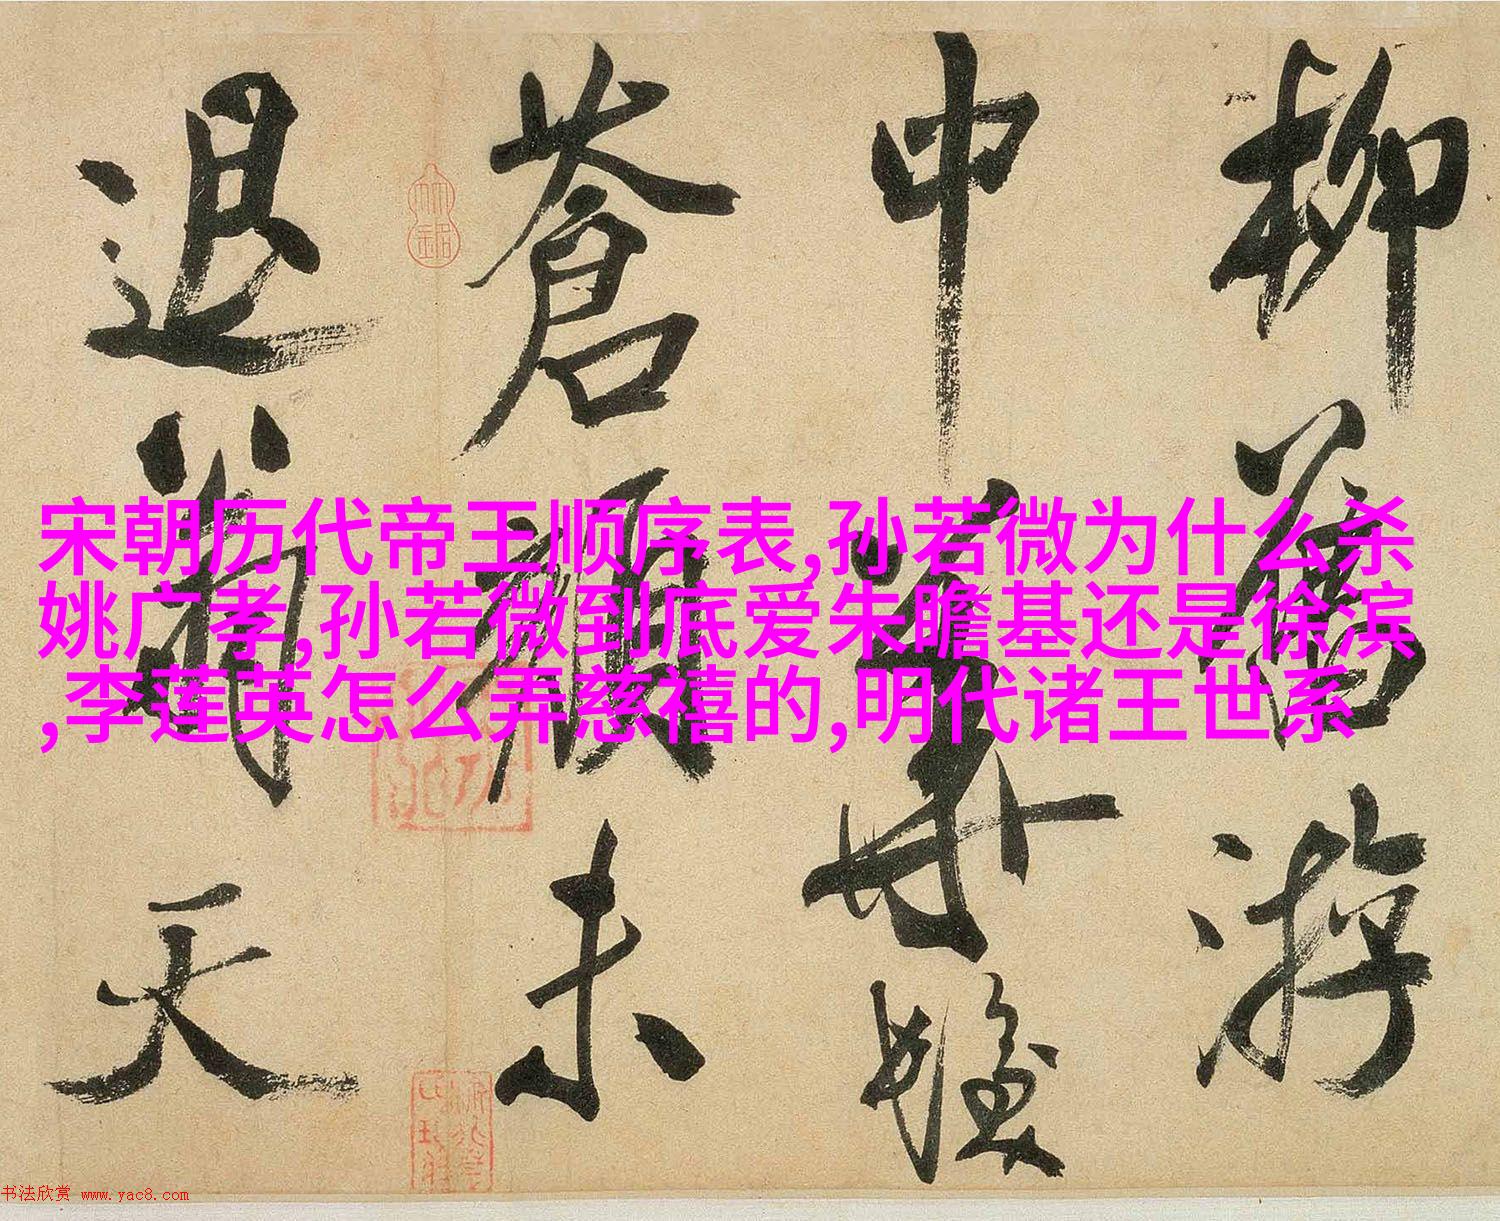 柳舊游
中再
蒼顏未
退天
宋朝历代帝王顺序表,孙若微为什么杀
姚广孝,孙若微到底爱朱瞻基还是徐滨
,李莲英怎么弄慈禧的,明代诸王世系
书法欣赏 www.yac8.com